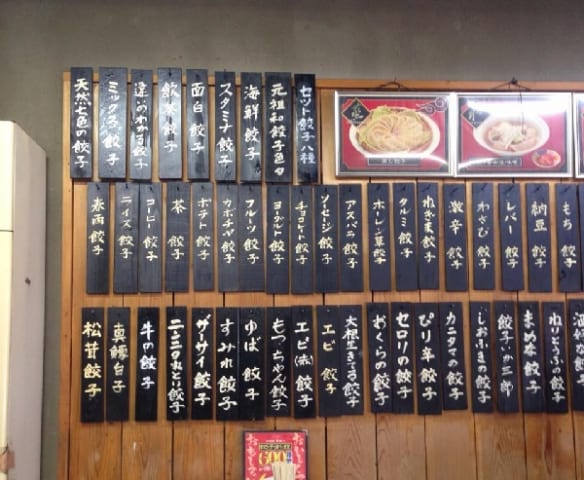 セット餃子八種
元祖和餃子色々
海鮮餃子
スタミナ餃子
面白餃子
飲茶餃子
違いのわかる餃子
ミックス餃子
天然七色の餃子
もち餃子
納豆餃子
レバー餃子
わさび餃子
激辛餃子
ねぎま餃子
タルミ餃子
ホーレン草餃子
アスパラ餃子
ソーセージ餃子
チョコレート餃子
ヨーグルト餃子
フルーツ餃子
カボチャ餃子
ポテト餃子
茶餃子
コーヒー餃子
チーズ餃子
春雨餃子
ねりとうふの餃子
まめな餃子
餃子いか三郎
しおふきの餃子
カニタマの餃子
ぴり辛餃子
セロリの餃子
おくらの餃子
エビ餃子
エビ(赤)餃子
もっちゃん餃子
ゆば餃子
すみれ餃子
ザーサイ餃子
牛の餃子
真鱈白子
松茸餃子
600